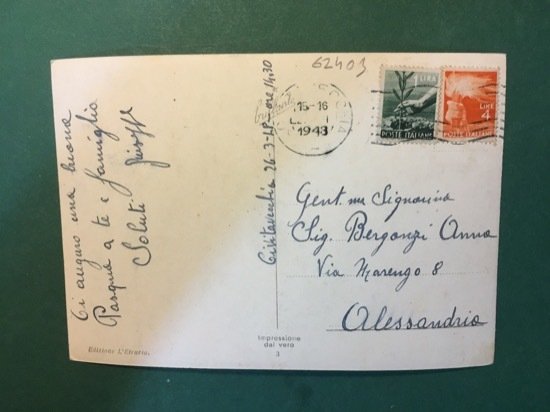 62403
LIRA
1
POSTE ITALIANE
LIRE
4
POSTE ITALIANE
ROMA
15-16
1948
Ci auguro una buona
Pasqua a te e famiglia
Saluti
Giuseppe
Civitavecchia 26-3-48 ore 14.30
Gent.ma Signorina
Sig. Bergonzi Anna
Via Marengo 8
Alessandria
Edizione L'Etruria.
Impressione
dal vero
3